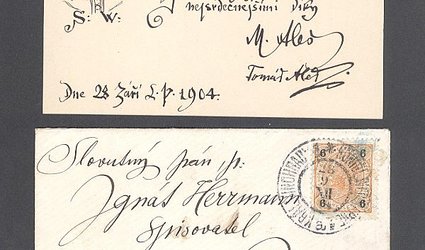 nejsrdečnejšími díky
S. W.
M. Aleš
Tomáš Aleš
Dne 28 Září L. P. 1904.
6 6
6 6
Slovutný pán p.
Ignát Herrmann
spisovatel